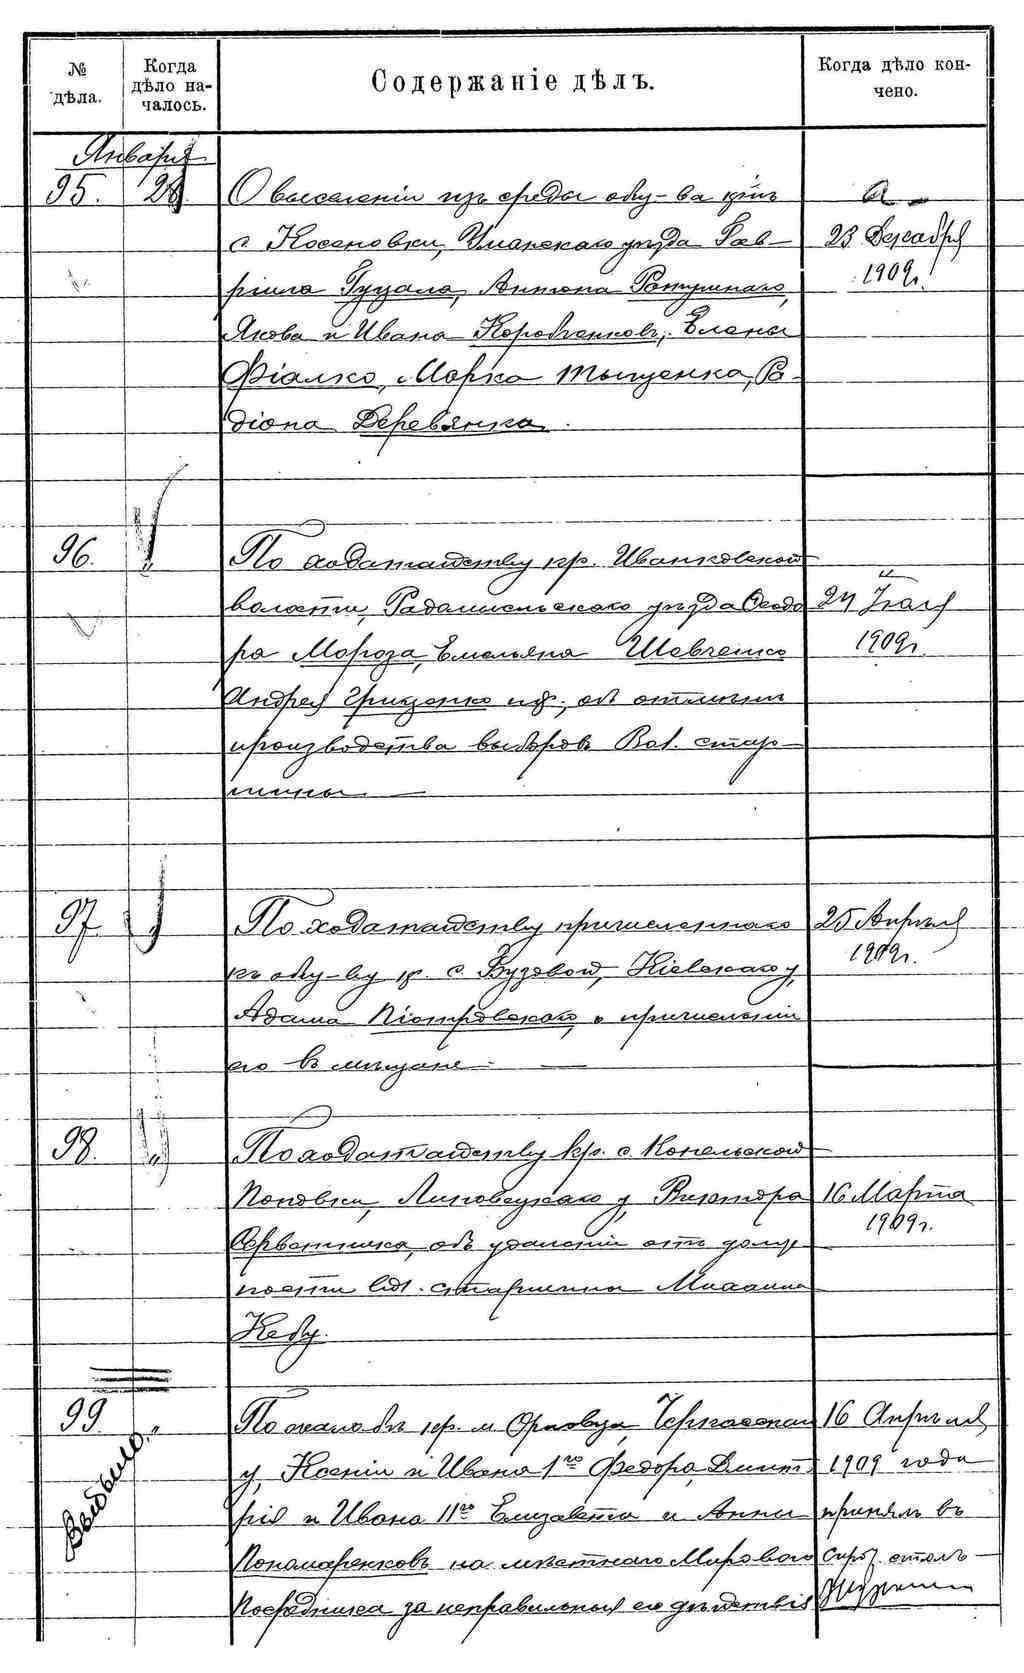 № дѣла.
Когда дѣло на-
чалось.
Содержаніе дѣлъ.
Когда дѣло кон-
чено.
Января
95. 28.
О выселеніи изъ среды общ-ва кр-нъ
с. Косеновки, Уманскаго уѣзда Гав-
ріила Гуцала, Антона Ратушнаго,
Якова и Ивана Коробченковъ, Елены
Фіалко, Марка Тыщенка, Ра-
діона Деревянка.
23 Декабря
1909г.
96. "
По ходатайству кр. Иванковской
волости, Радомысльскаго уѣзда Ѳеодо
ра Мороза, Емельяна Шевченко
Андрея Гриценко и др., объ отмѣнѣ
производства выборовъ Вол. стар-
шины —
24 Іюля
1909г.
97. "
По ходатайству причисленнаго
къ общ-ву кр. с. Бузовой, Кіевскаго у,
Адама Піотровскаго, о причисленіи
его въ мѣщане —
25 Апрѣля
1909г.
98. "
По ходатайству кр. с. Конельской
Поповки, Липовецкаго у, Виктора
Серветника, объ удаленіи отъ долж
ности вол. старшины Михаила
Кебу.
16 Марта
1909г.
99. "
Выбыло.
По жалобѣ кр. м. Орловца, Черкасскаго
у, Ксеніи и Ивана 1го Федора, Дмит-
рія и Ивана IIго Елизаветы и Анны
Пономаренковъ на мѣстнаго Мирового
Посредника за неправильныя его дѣйствія
16 Апрѣля
1909 года
принялъ въ
столъ